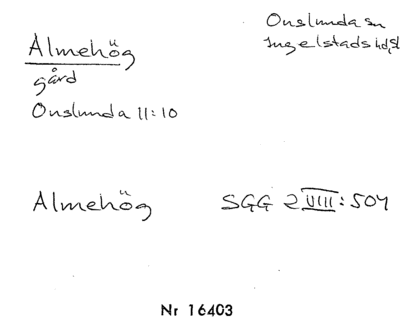 Onslunda sn
Ingelstads hd, Sk
Älmehög
gård
Onslunda 11:10
Älmehög SGG 2 VIII: 504
Nr 16403